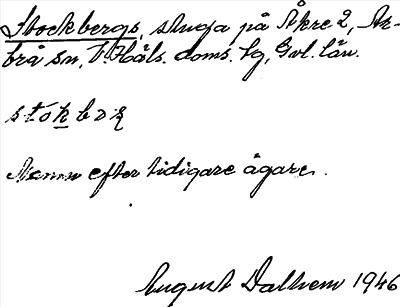 Stockbergs, stuga på Åkre 2, Ar-
brå sn, V. Häls. doms. hg, Gvl. län.
stókbærg
Namn efter tidigare ägare.
August Dalhem 1946